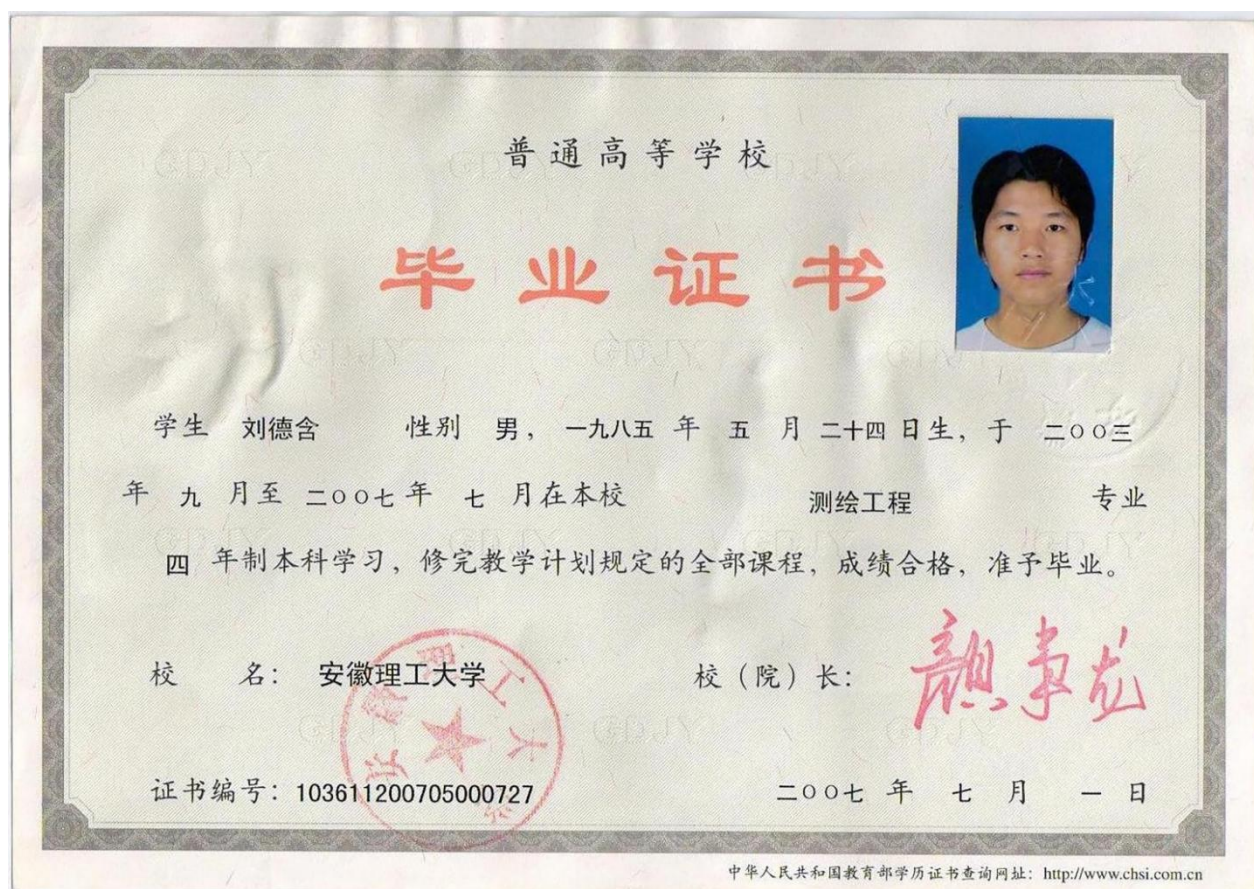 普通高等学校
毕业证书
学生 刘德含 性别 男，一九八五 年 五 月 二十四 日生，于 二〇〇三
年 九 月至 二〇〇七 年 七 月在本校 测绘工程 专业
四 年制本科学习，修完教学计划规定的全部课程，成绩合格，准予毕业。
校 名：安徽理工大学 校（院）长：
证书编号：103611200705000727 二〇〇七 年 七 月 一 日
中华人民共和国教育部学历证书查询网址：http://www.chsi.com.cn